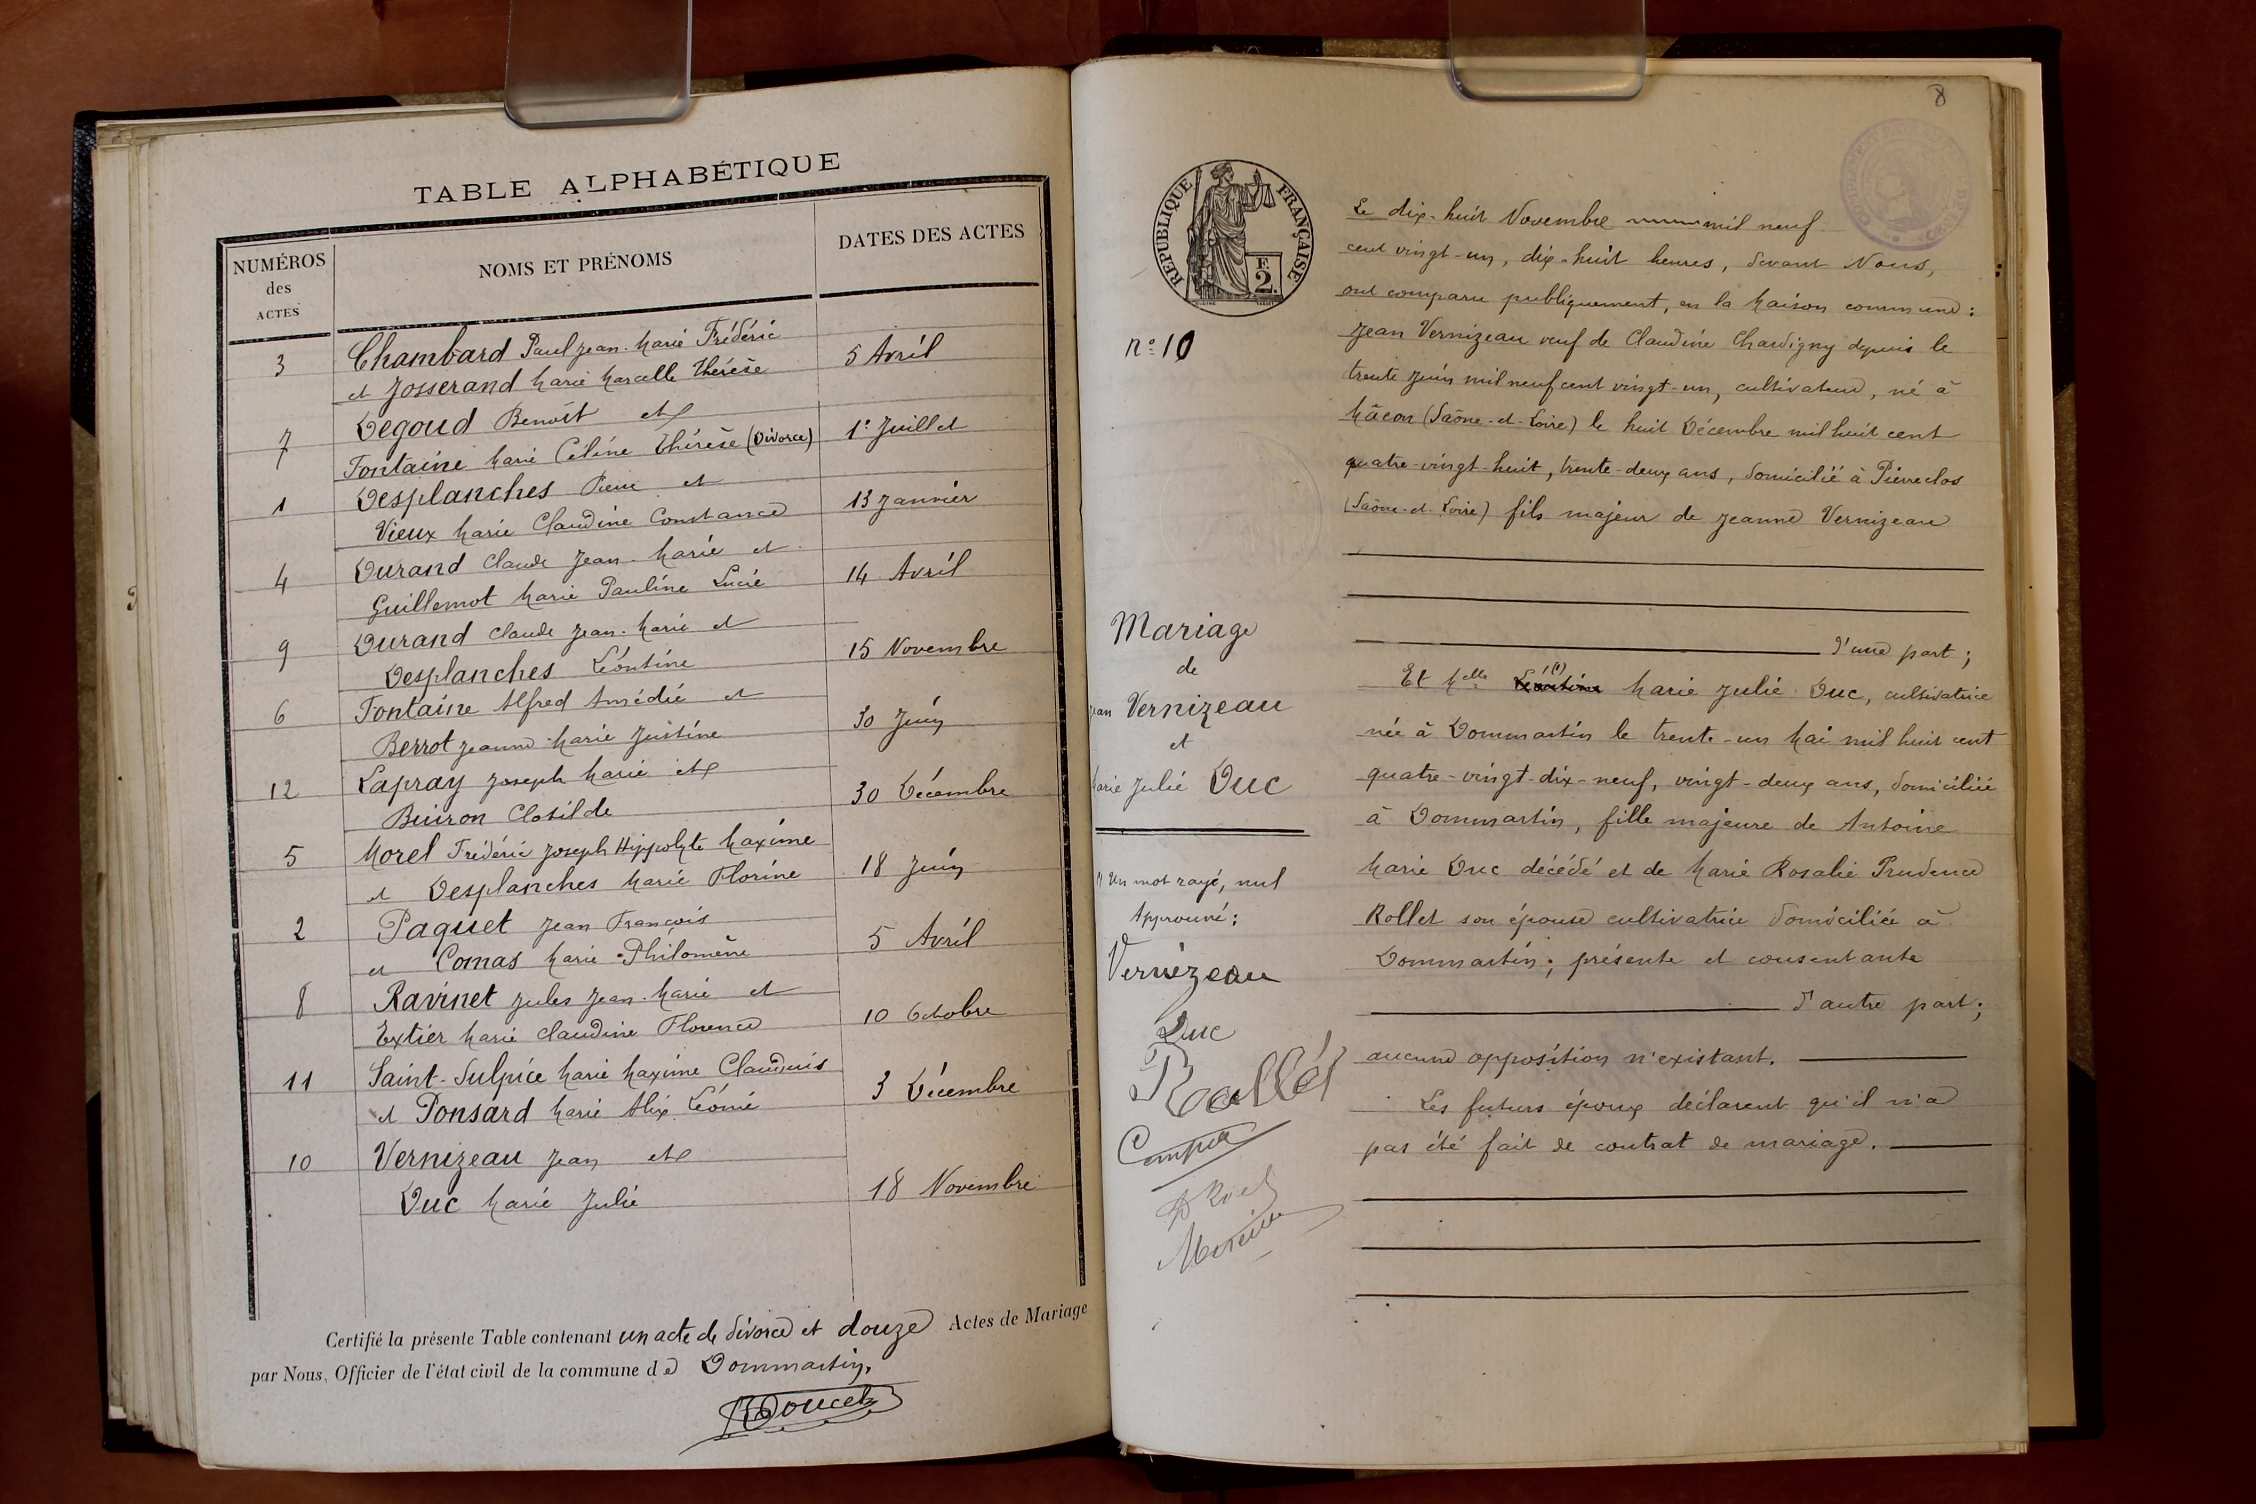 TABLE ALPHABÉTIQUE
NUMÉROS
des
ACTES
NOMS ET PRÉNOMS
DATES DES ACTES
3 Chambard Paul Jean-Marie Frédéric
et Josserand Marie Marcelle Thérèse 5 Avril
7 Degoud Benoît et
Fontaine Marie Céline Thérèse (Divorce) 1er Juillet
1 Desplanches Pierre et
Vieux Marie Claudine Constance 13 Janvier
4 Durand Claude Jean-Marie et
Guillemot Marie Pauline Lucie 14 Avril
9 Durand Claude Jean-Marie et
Desplanches Léontine 15 Novembre
6 Fontaine Alfred Amédié et
Berrot Jeanne Marie Justine 30 Juin
12 Lapray Joseph Marie et
Buiron Clotilde 30 Décembre
5 Morel Frédéric Joseph Hippolyte Maxime
et Desplanches Marie Florine 18 Juin
2 Paquet Jean François
et Comas Marie-Philomène 5 Avril
8 Ravinet Jules Jean-Marie et
Extier Marie Claudine Florence 10 Octobre
11 Saint-Sulpice Marie Maxime Claudius
et Ponsard Marie Alix Léonie 3 Décembre
10 Vernizeau Jean et
Duc Marie Julie 18 Novembre
Certifié la présente Table contenant un acte de divorce et douze Actes de Mariage
par Nous, Officier de l'état civil de la commune de Dommartin.
Doucet
8
RÉPUBLIQUE FRANÇAISE
F.
2.
N° 10
Mariage
de
Jean Vernizeau
et
Marie Julie Duc
(1) Un mot rayé, nul
Approuvé :
Vernizeau
Duc
Rollet
Le dix-huit Novembre mil neuf
cent vingt-un, dix-huit heures, devant Nous,
ont comparu publiquement, en la Maison commune :
Jean Vernizeau veuf de Claudine Chardigny depuis le
trente Juin mil neuf cent vingt-un, cultivateur, né à
Mâcon (Saône-et-Loire) le huit Décembre mil huit cent
quatre-vingt-huit, trente-deux ans, domicilié à Pierreclos
(Saône-et-Loire) fils majeur de Jeanne Vernizeau
d'une part ;
Et Melle Léontine (1) Marie Julie Duc, cultivatrice
née à Dommartin le trente-un Mai mil huit cent
quatre-vingt-dix-neuf, vingt-deux ans, domiciliée
à Dommartin, fille majeure de Antoine
Marie Duc décédé et de Marie Rosalie Prudence
Rollet son épouse cultivatrice domiciliée à
Dommartin ; présente et consentante
d'autre part ;
aucune opposition n'existant.
Les futurs époux déclarent qu'il n'a
pas été fait de contrat de mariage.